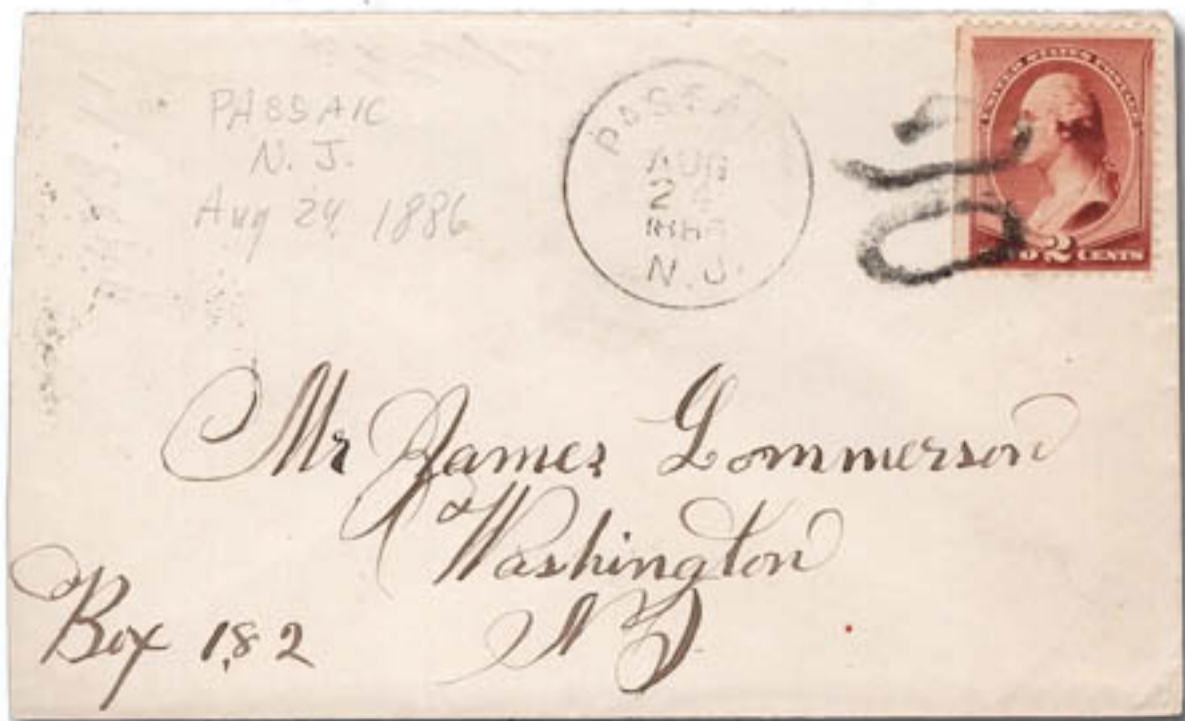 PASSAIC
N. J.
Aug 24, 1886
PASSAIC
AUG
24
1886
N.J.
UNITED STATES POSTAGE
TWO 2 CENTS
Mr James Lommerson
Washington
N J
Box 182